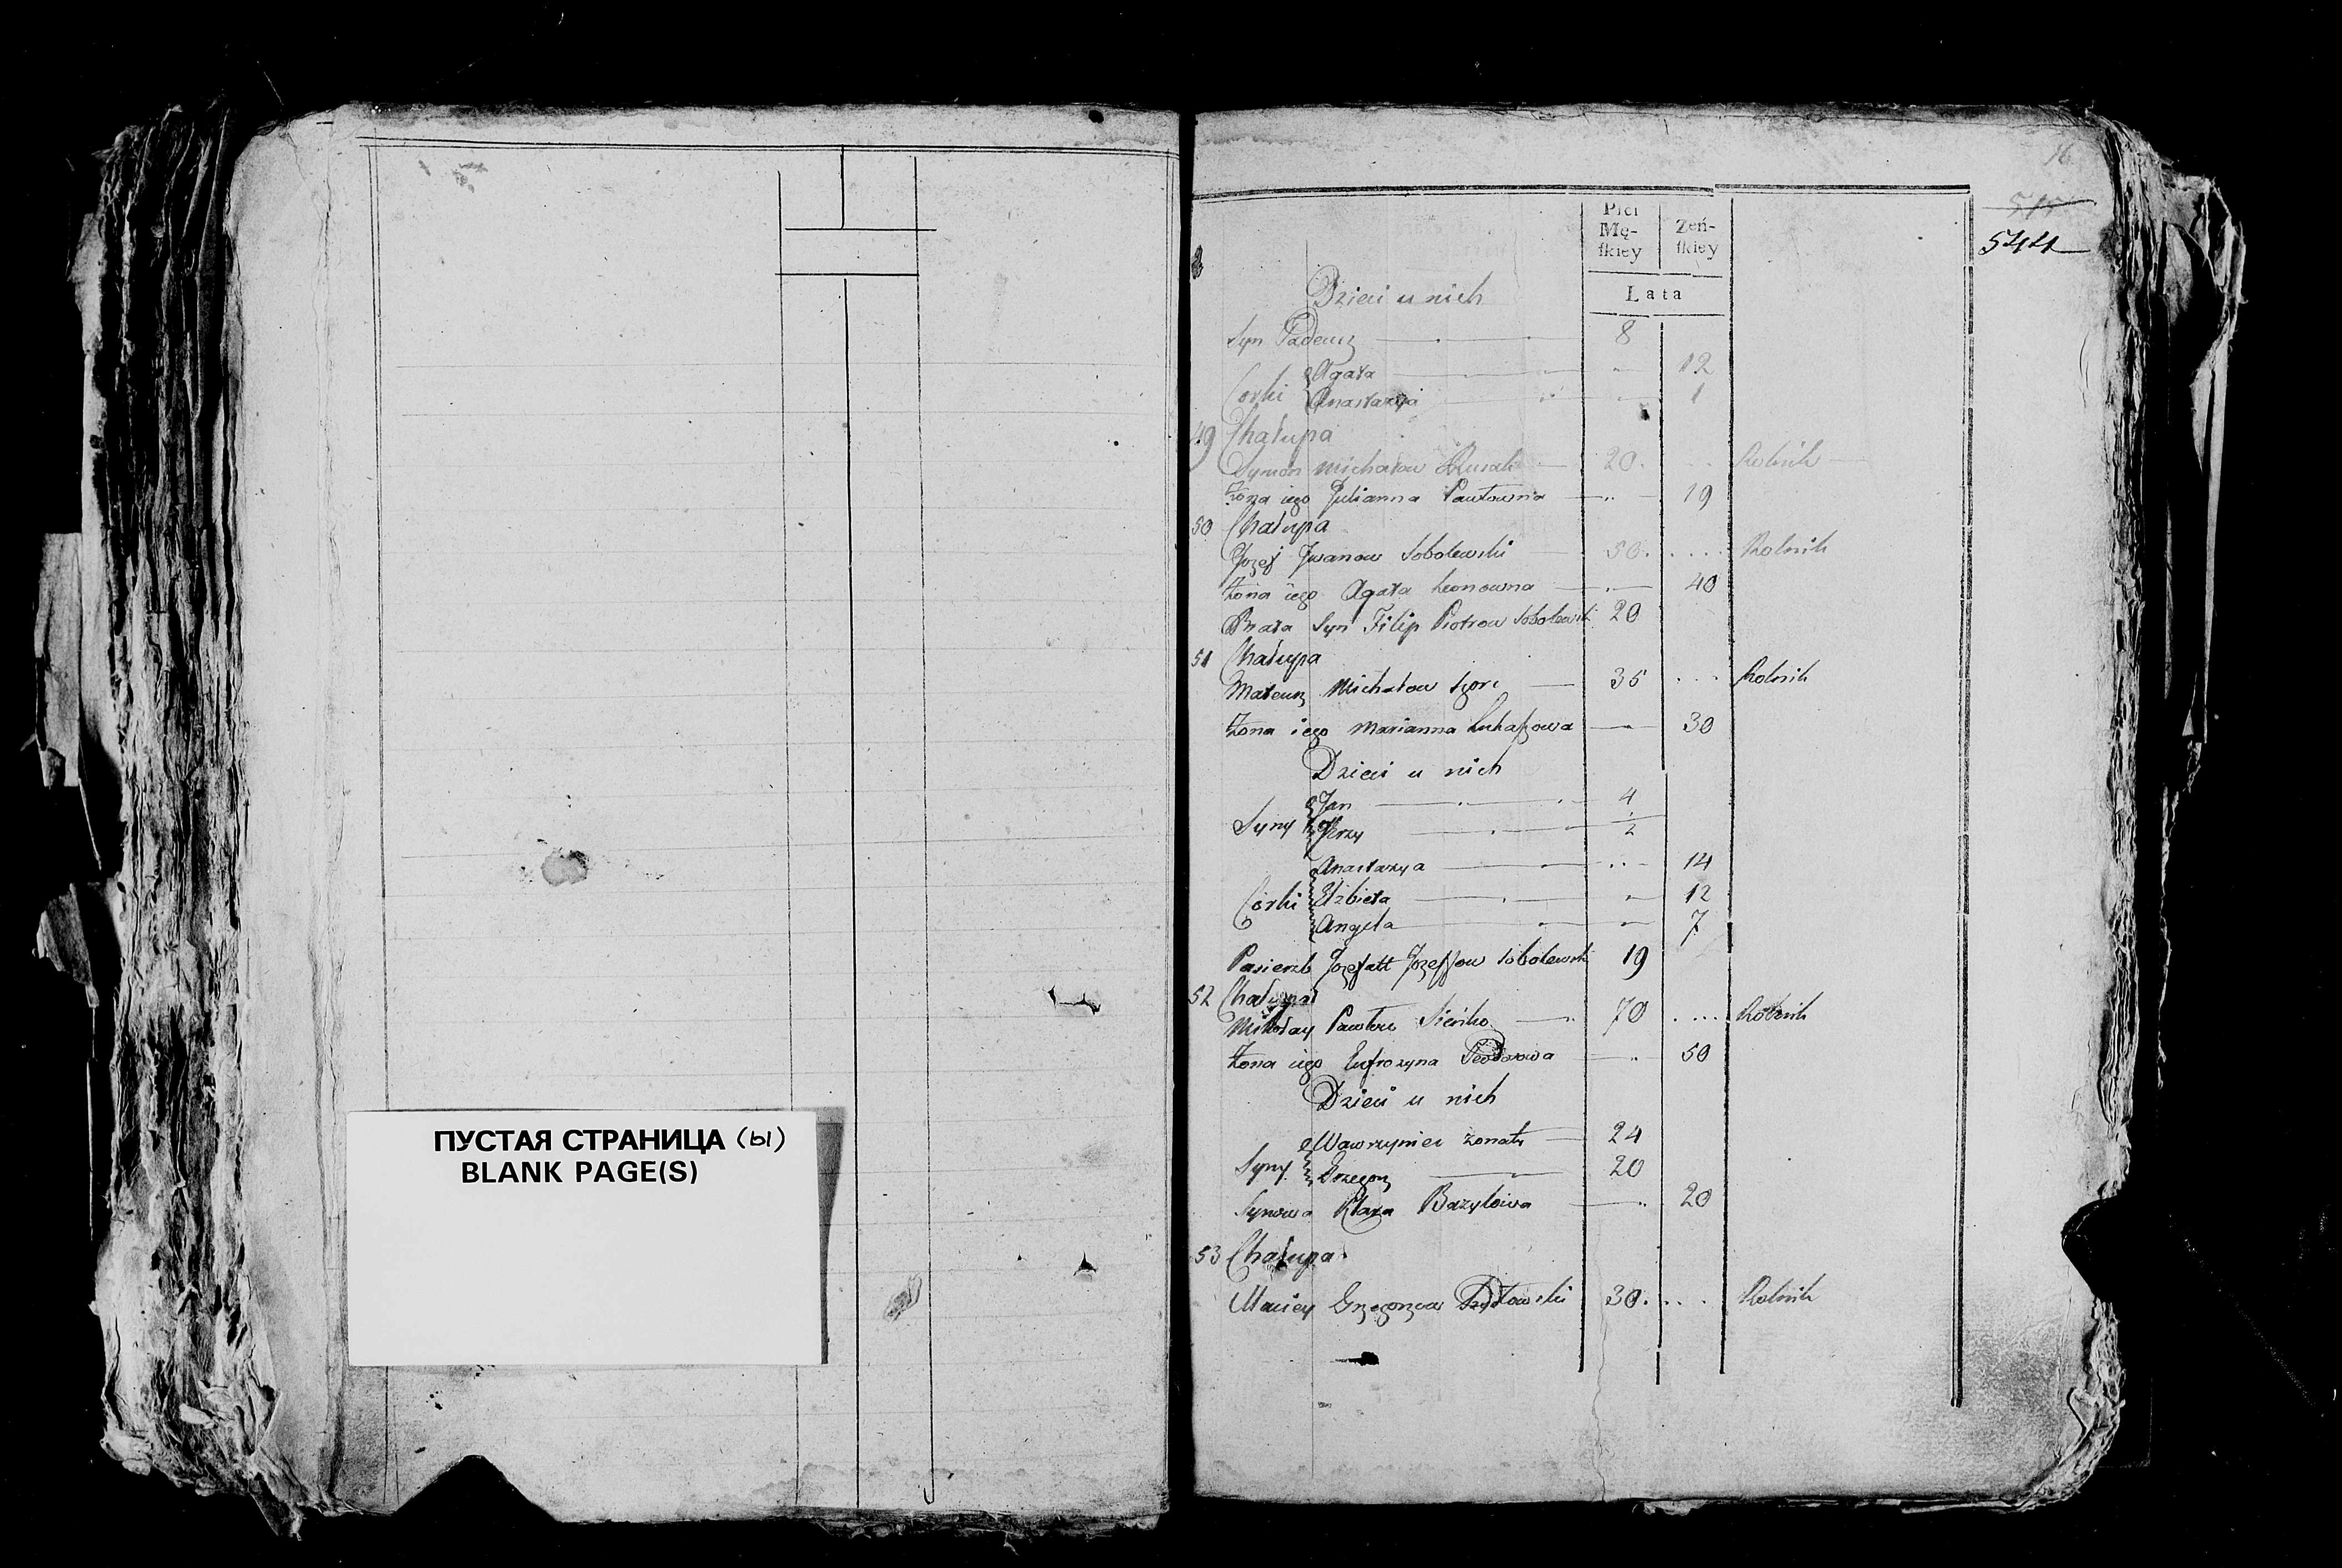 ПУСТАЯ СТРАНИЦА (ы)
BLANK PAGE(S)
16
515
544
Płci
Mę-
ſkiey
Żeń-
ſkiey
Lata
Dzieci u nich
Syn Tadeusz 8
Corki Agata 12
Anastazya 1
49 Chałupa
Symon Michałow 20. Rolnik
Żona iego Julianna Pawłowna 19
50 Chałupa
Jozef Jwanow Sobolewski 50. Rolnik
Żona iego Agata Leonowna 40
Brata Syn Filip Piotrow Sobolewski 20
51 Chałupa
Mateusz Michałow 35 Rolnik
Żona iego Marianna Łukaſzowa 30
Dzieci u nich
Syny Jan 4
Jerzy 2
Anastazya 14
Córki Elżbieta 12
Angela 7
Pasierzb Jozefatt Jozeffow Sobolewski 19
52 Chałupa
Mikołay Pawłow Sieńko 70 Rolnik
Żona iego Eufrozyna Teodorowa 50
Dzieci u nich
Syny Wawrzyniec żonaty 24
Grzegorz 20
Synowa Klara Bazylowa 20
53 Chałupa
Maciey Grzegorzow 30. Rolnik